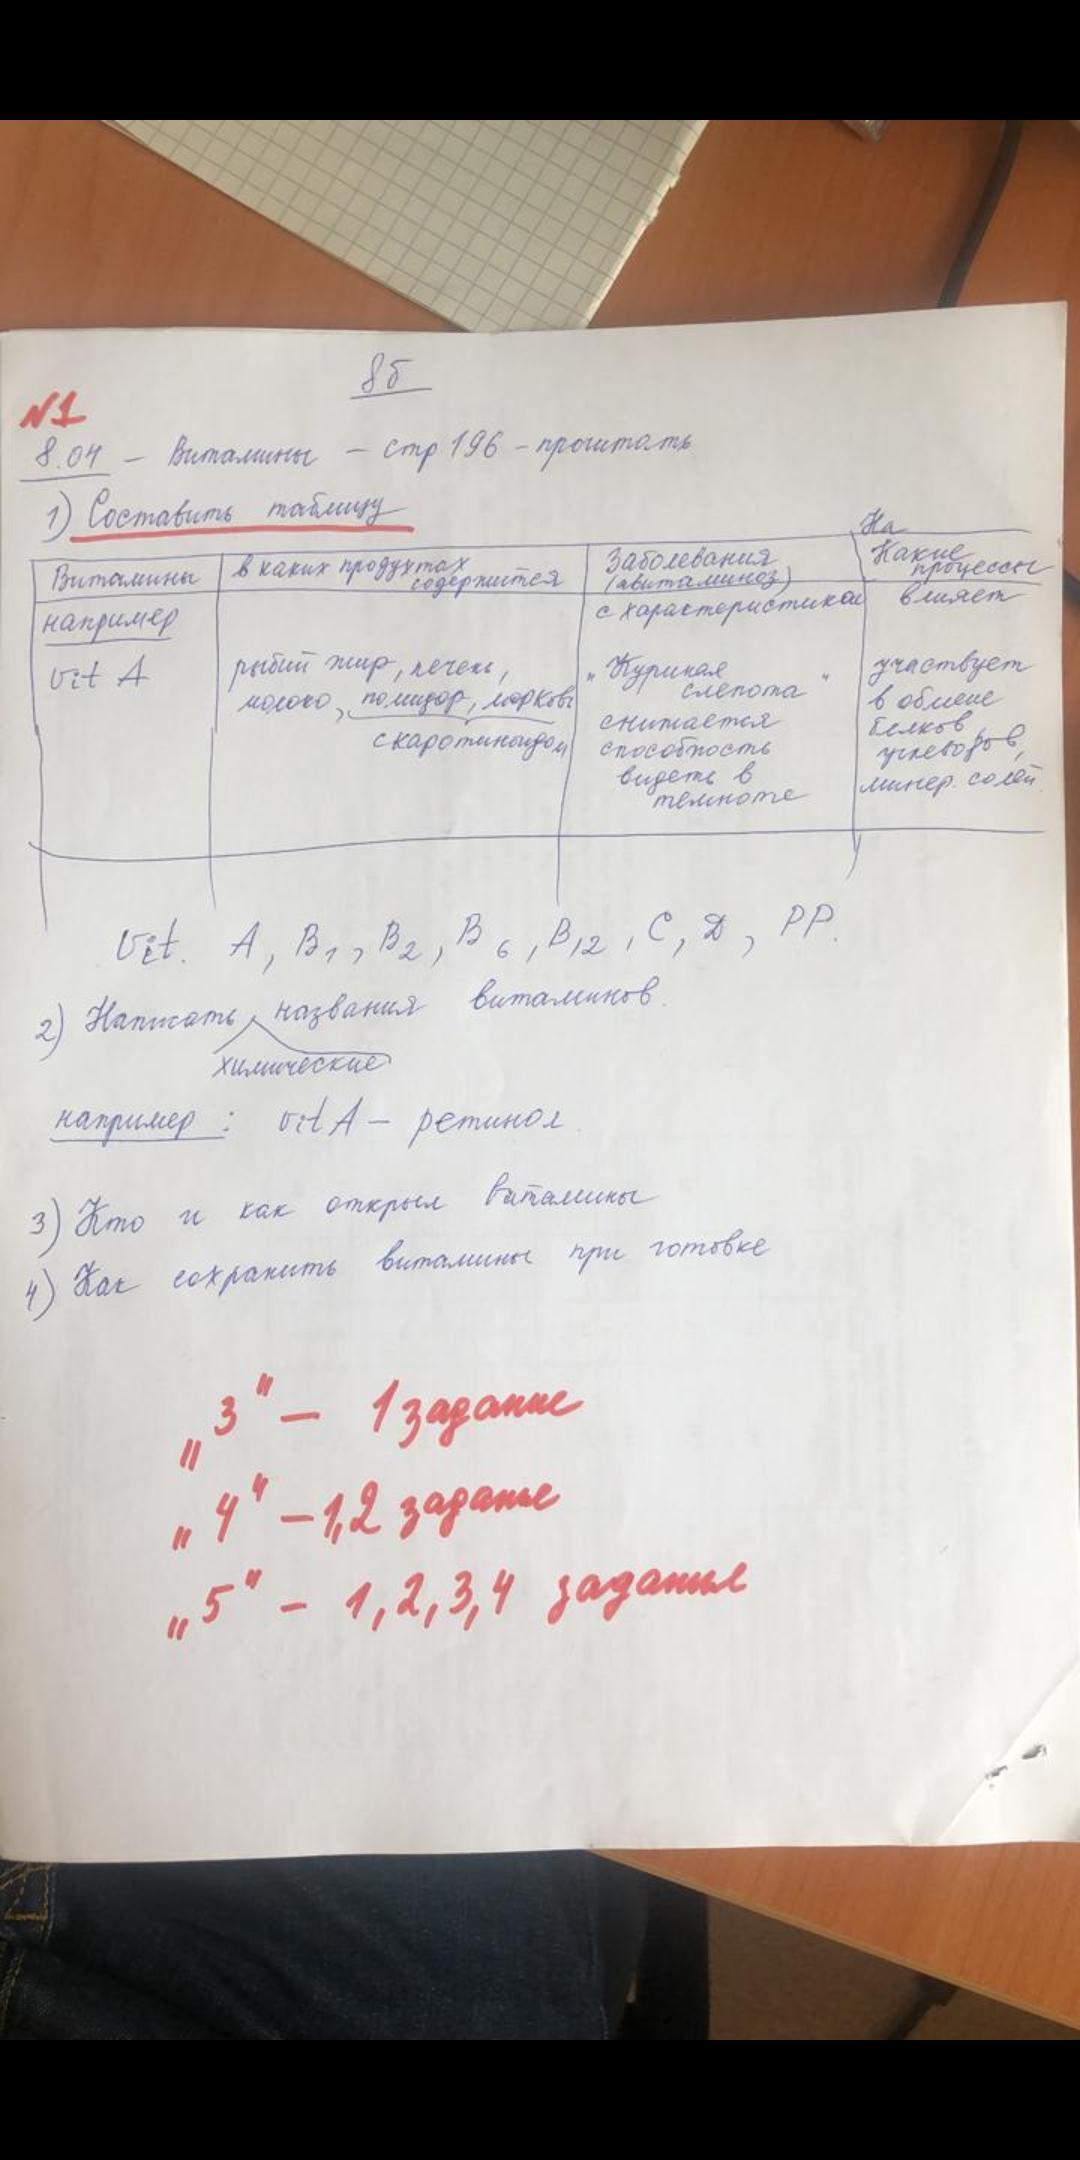 8б
№1
8.04 – Витамины – стр 196 – прочитать
1) Составить таблицу
Витамины
в каких продуктах содержится
Заболевания (авитаминоз) с характеристикой
На какие процессы влияет
например
vit A
рыбий жир, печень,
молоко, помидор, морковь
с каротиноидом
„Куриная слепота"
снижается
способность
видеть в
темноте
участвует
в обмене
белков,
углеводов,
минер. солей.
Vit. A, B1, B2, B6, B12, C, D, PP.
2) Написать химические названия витаминов.
например: vit A – ретинол.
3) Кто и как открыл витамины
4) Как сохранить витамины при готовке
„3" – 1 задание
„4" – 1,2 задание
„5" – 1,2,3,4 задания